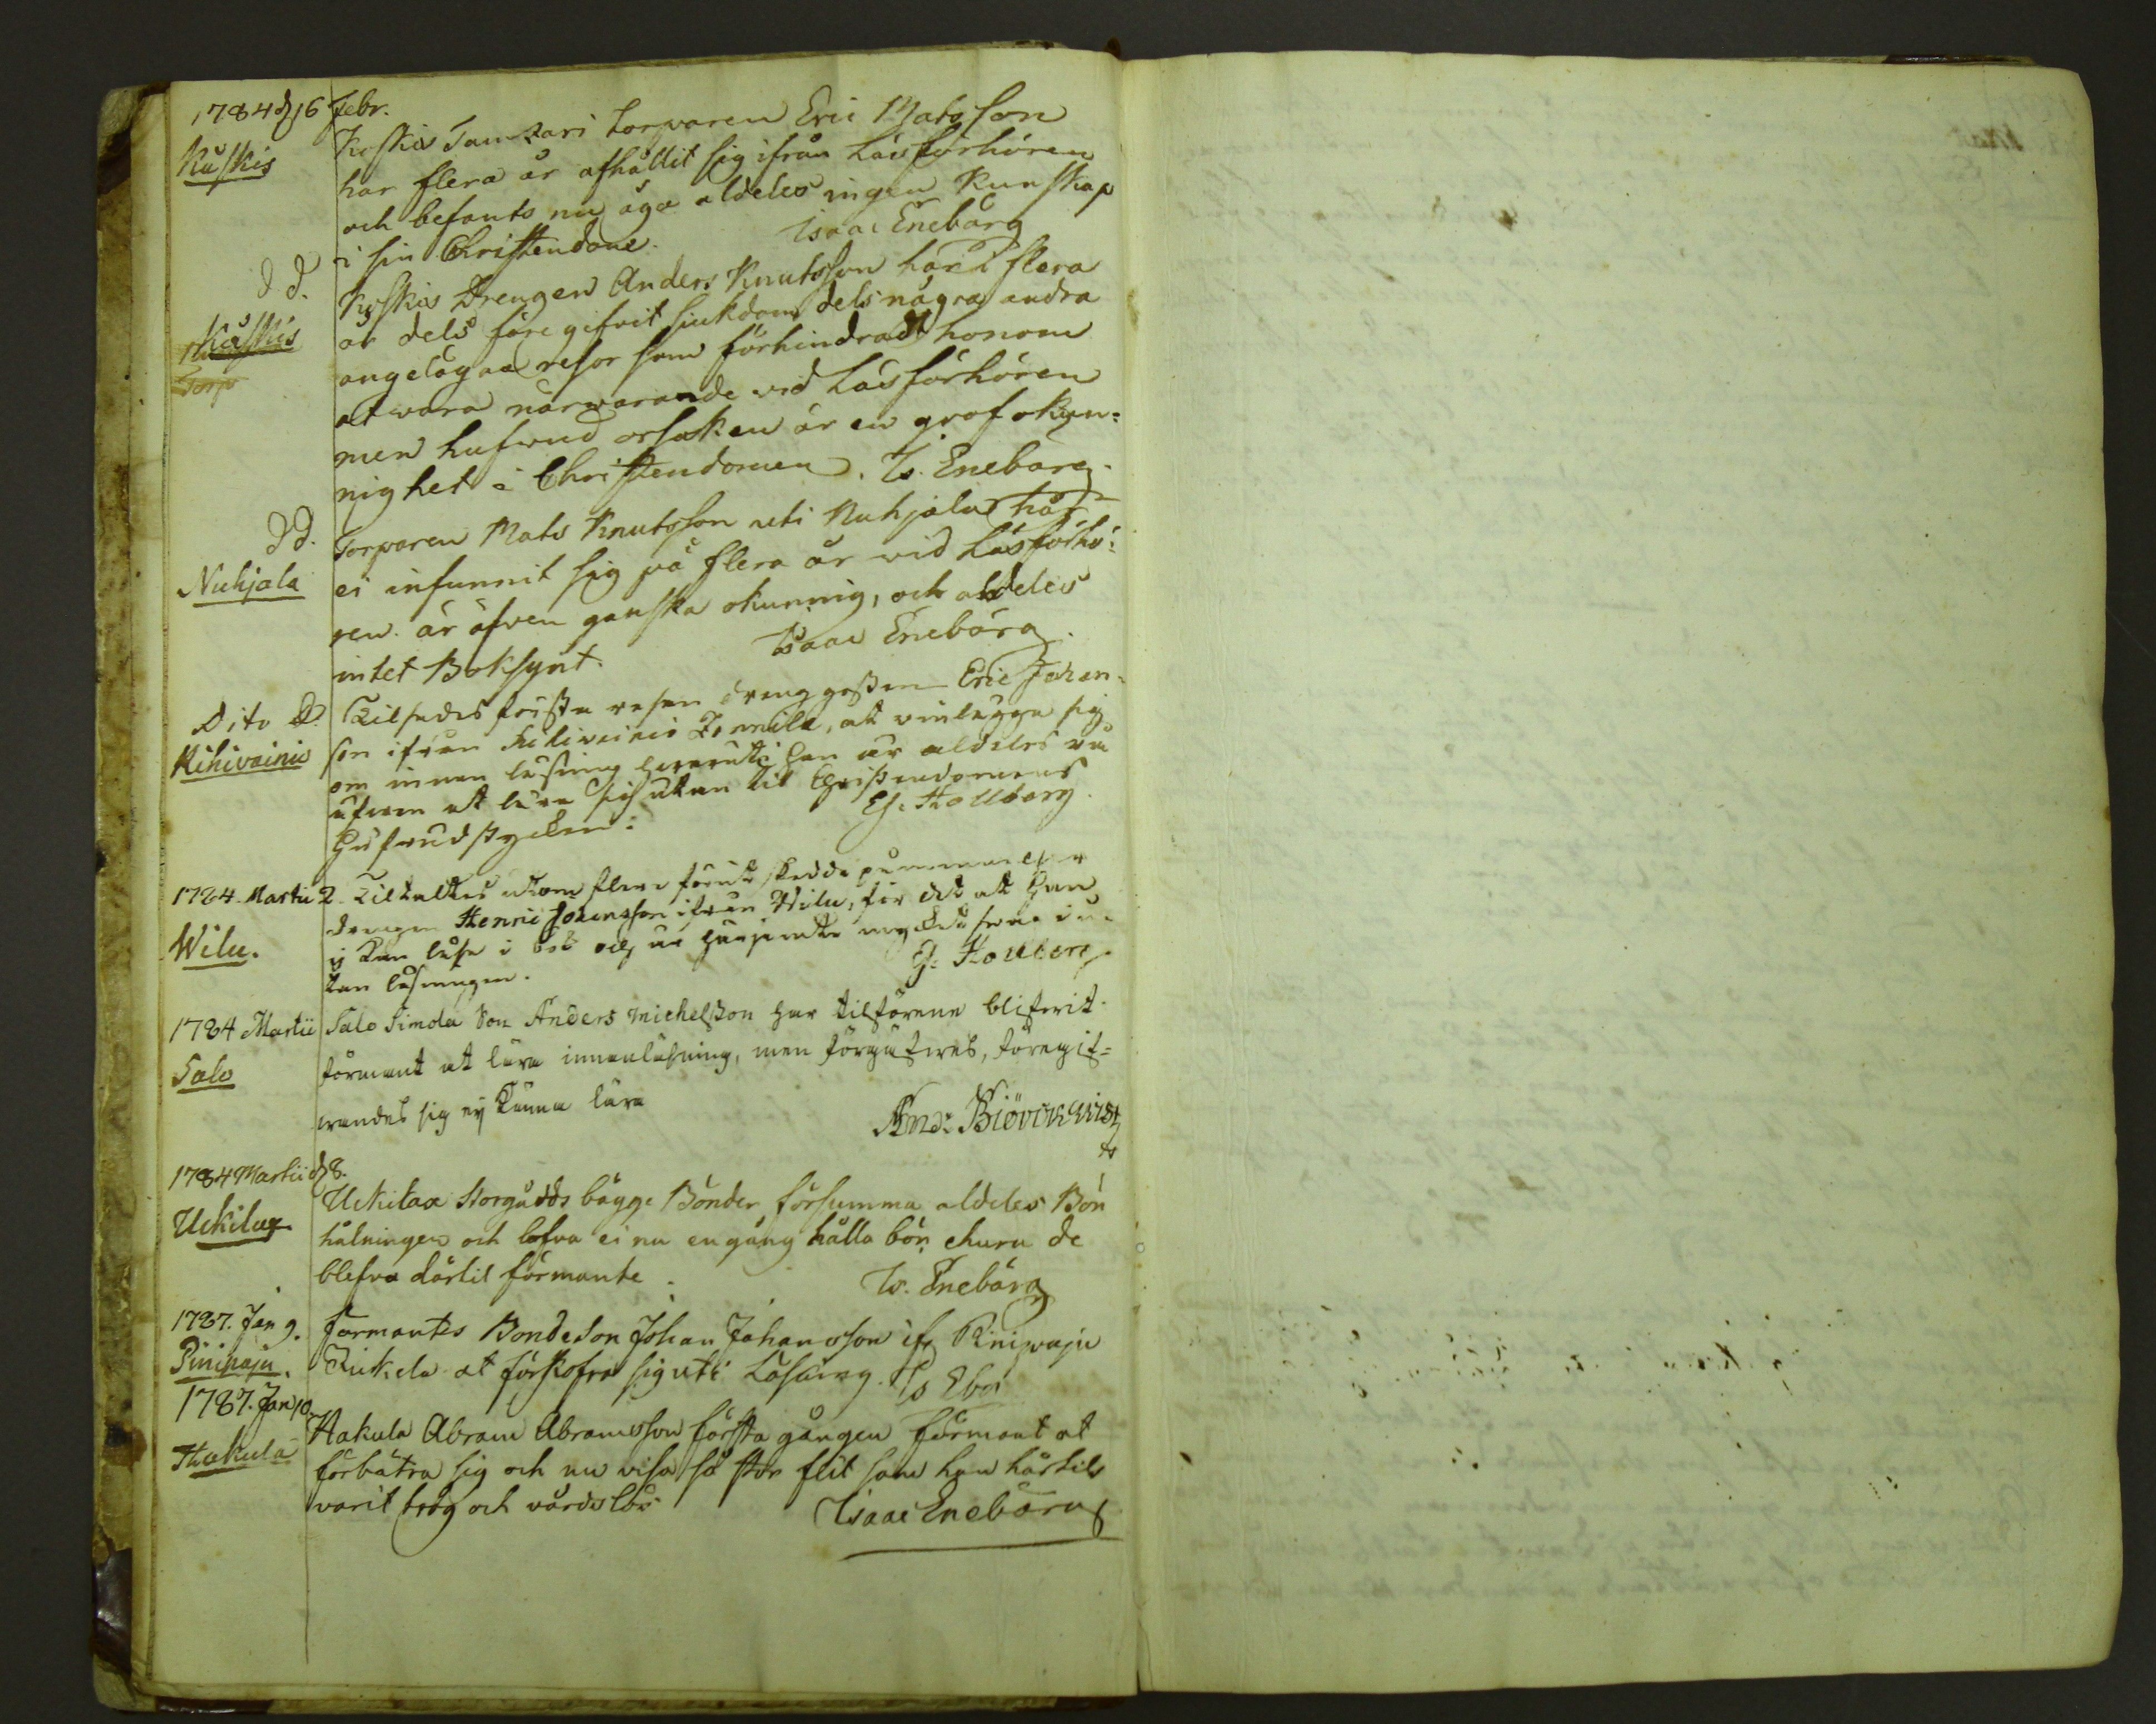 1784 d 16 Febr.
Kuskis
Koskis Samzari torparen Eric Matsson
har flera år afhållit sig ifrån Läsförhören
och befants nu äga aldeles ingen Kunskap
i sin Christendom. Isaac Enebärg
d d.
Kuskis
Torp
Koskis Drengen Anders Knutsson har i flera
år dels före gifvit siukdom dels några andra
angelägna resor som förhindradt honom
at wara närwarande vid Läsförhören
men hufwud orsaken är en grof okun-
nighet i Christendomen. Is. Enebärg.
dd.
Nuhjala
Torparen Mats Knutsson uti Nuhjala har
ei infunnit sig på flera år vid Läsförhö-
ren. är äfven ganska okunnig, och aldeles
intet Boksynt. Isaac Enebärg.
Dito d.
Kihivainio
Tilsades första resan drenggossen Eric Johan-
son ifrån Kihivainio, at vinlägga sig
om innan läsning hwaruti han är aldeles
äfwen at lära sig utan til Christendomens
Hufvudstycken. G: Hollberg.
1784 Martii 2.
Wilu.
Tiltaltes utom flere förut skedde påminnelser
drengen Henric Johansson ifrån Wilu, för det at han
ej kan läsa i bok och
tan läsningen. G: Hollberg
1784 Martii
Salo
Salo Simola Son Anders Michelsson har tilförene blifvit
förmant at lära innanläsning, men förgäfves, föregif-
wandes sig ej kunna lära
And: Biörckqvist
1784 Martii d 8.
Uckilax
Uckilax Storgårds bägge Bönder försumma aldeles Bön
hålningen och lofva ei nu en gång hålla bön ehuru de
blefvo därtil förmante. Is. Enebärg
1787. Jan 9.
Pinipaju.
Förmantes Bonde Son Johan Johansson ifr Pinipaju
at förkofra sig uti Läsning. Is Ebg
1787. Jan 10.
Hakula
Hakula Abram Abramsson första gången förmant at
förbätra sig och nu visa så stor flit som han härtils
varit trög och vårdslös Isaac Enebärg